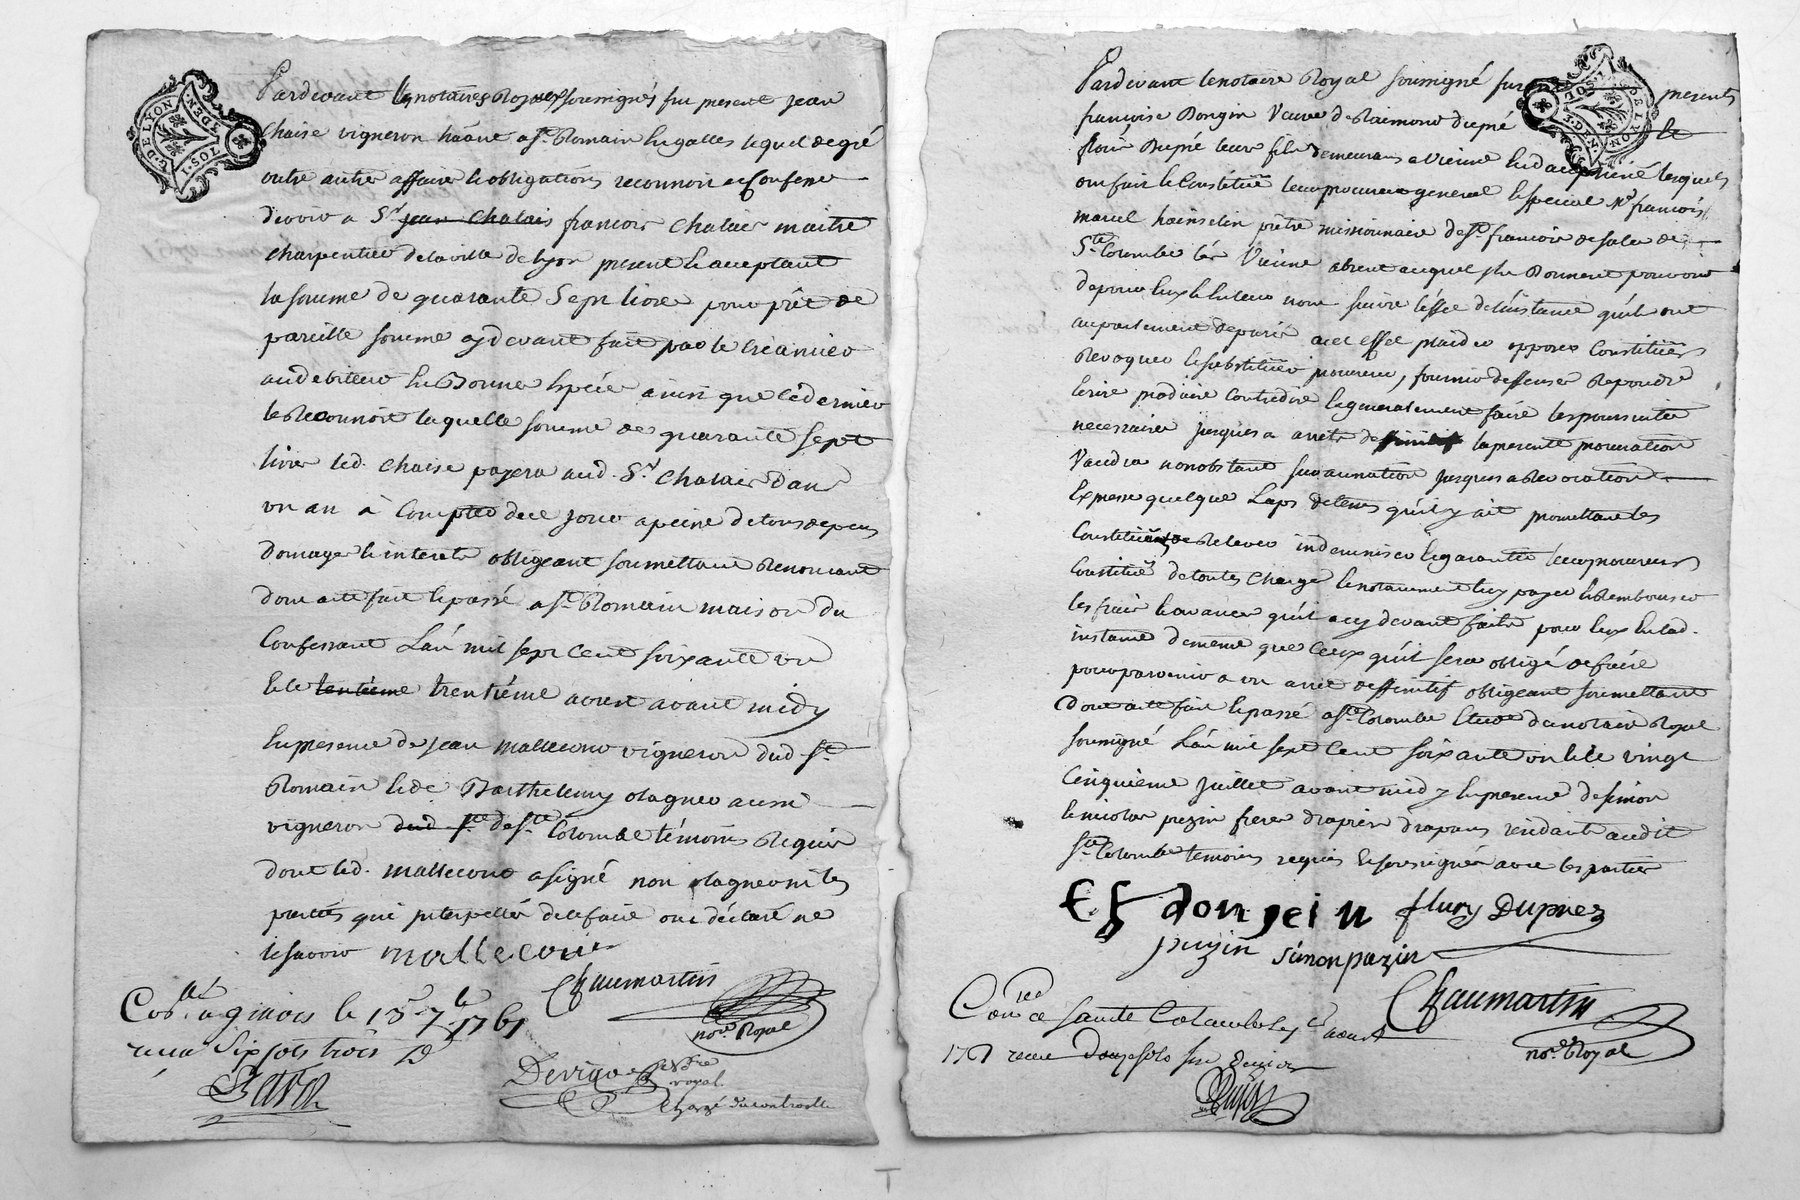 G. DE LYON
1. SOL. 4. DEN.
Pardevant les notaires Royaux soussignés fut present jean
chaise vigneron hânt a st. Romain En galles lequel de gré
outre autres affaires & obligations reconnoit et Confesse
devoir a Sr. jean Chalais francois Chalais maitre
charpentier de la ville de Lyon present & acceptant
la somme de quarante Sept livres pour prêt de
pareille somme cy devant fait par le créancier
au debiteur En Bonnes Especes ainsi que le dernier
le Reconnoit laquelle somme de quarante sept
livres led. chaise payera aud. Sr. chalais dans
un an à Compter de ce jour a peine de tous depens
domages & interets obligeant soumettant Renoncant
dont acte fait & passé a st. Romain maison du
Confessant L'an mil sept cent soixante un
& le trentième avril avant midy
En presence de jean mallecour vigneron dud st.
Romain & de Barthelemy olagner aussi
vigneron dud. ste. de ste. Colombe témoins Requis
dont led. mallecour a signé non olagner ni les
parties qui interpellés de le faire ont déclaré ne
le savoir mallecour
Chaumartin
nore. Royal
Conlé. a givors le 13 7bre 1761
recu Six sols trois d
Devigne
royal
chargé du controlle
G. DE LYON
1. SOL. 4. DEN.
Pardevant le notaire Royal soussigné furent presents
francoise Dongin Veuve de Raimond dupré &
fleuri Dupré leur fils demeurans a Vienne En dauphiné lesquels
ont fait & Constitué leur procureur general & special Mre francois
marcel hainselin prêtre missionnaire de st. francois de sales de
Ste. Colombe lès Vienne absent auquel ils Donnent pouvoir
de pour Eux & En leur nom suivre l'effet de l'instance qu'ils ont
au parlement de paris a cet effet plaider opposer Constituer
Revoquer & substituer procureur, fournir deffenses Repondre
Ecrire produire Contredire & generalement faire les poursuites
necessaires jusques a arrêt definitif la presente procuration
Vaudra nonobstant surannation jusques a Revocation
Expresse quelque Laps de tems qu'il y ait promettant les
Constituants de Relever indemniser & garantir leur procureur
Constitué de toutes charges & notamment luy payer & Rembourser
les frais & avances qu'il a cy devant faits pour Eux En lad.
instance de même que Ceux qu'il sera obligé de faire
pour parvenir a un arrêt deffinitif obligeant soumettant
Dont acte fait & passé a ste. Colombe Etude du notaire Royal
soussigné L'an mil sept Cent soixante un & le vingt
Cinquieme juillet avant midy En presence de simon
& nicolas pezin freres drapiers drapans résidants audit
ste. Colombe temoins requis & soussignés avec les parties
E f donjein fleury Duprez
puzin simon puzin
Chaumartin
nore. Royal
Conlé a sainte Colombe le 1er aoust
1761 recu Douze sols six deniers